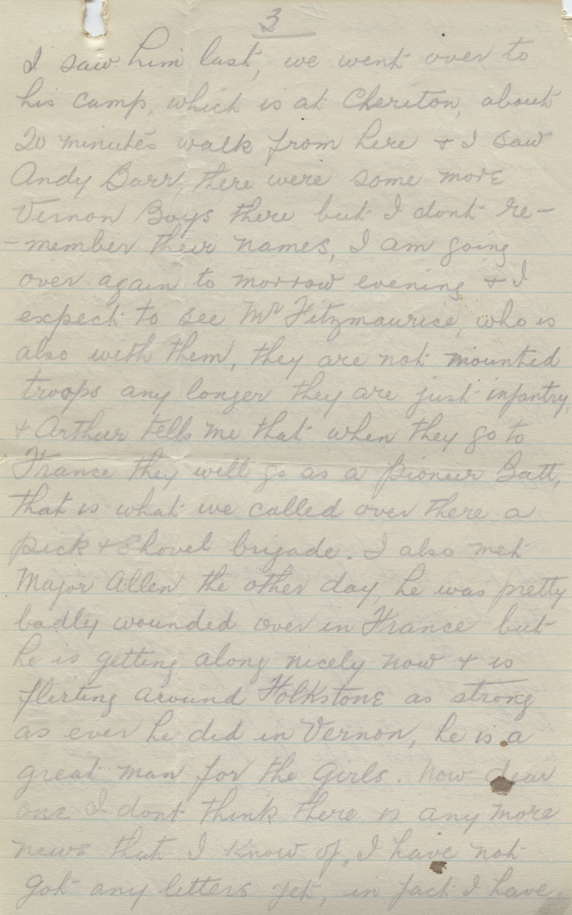 3
I saw him last, we went over to
his camp, which is at Cheriton, about
20 minutes walk from here & I saw
Andy Barr, there were some more
Vernon Boys there but I dont re-
-member their names, I am going
over again to morrow evening & I
expect to see Mr Fitzmaurice, who is
also with them, they are not mounted
troops any longer they are just infantry,
& Arthur tells me that when they go to
France they will go as a Pioneer Batt,
that is what we called over there a
pick & shovel brigade. I also met
Major Allen the other day, he was pretty
badly wounded over in France but
he is getting along nicely now & is
flirting around Folkstone as strong
as ever he did in Vernon, he is a
great man for the Girls. Now dear
one I dont think there is any more
news that I know of, I have not
got any letters yet, in fact I have